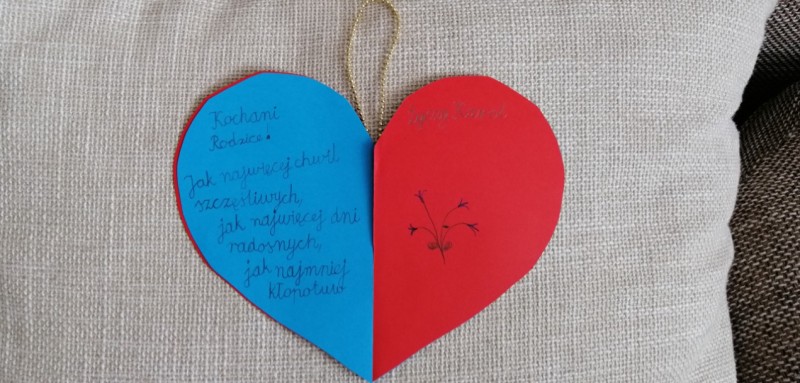 Kochani
Rodzice!
Jak najwięcej chwil
szczęśliwych,
jak najwięcej dni
radosnych,
jak najmniej
kłopotów